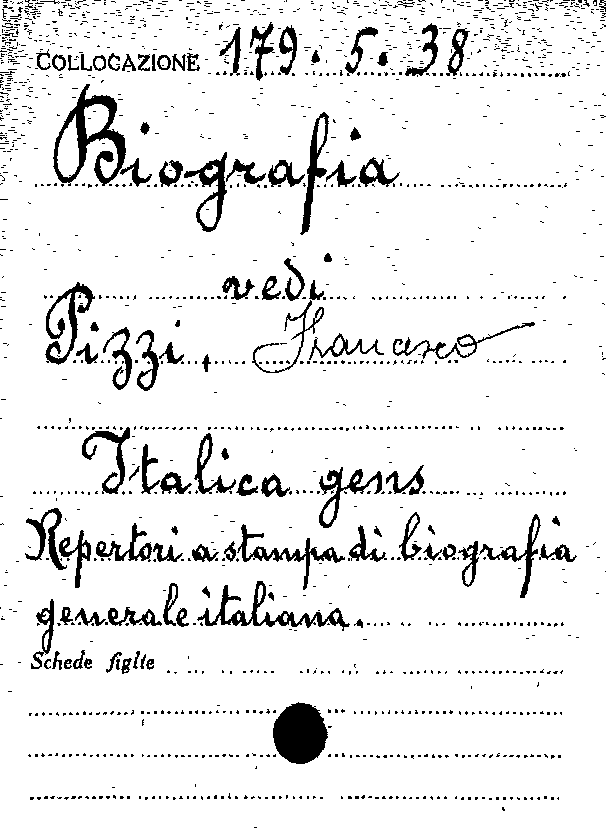 COLLOCAZIONE 179. 5. 38
Biografia
vedi
Pizzi, Francesco
Italica gens
Repertori a stampa di biografia
generale italiana.
Schede figlie